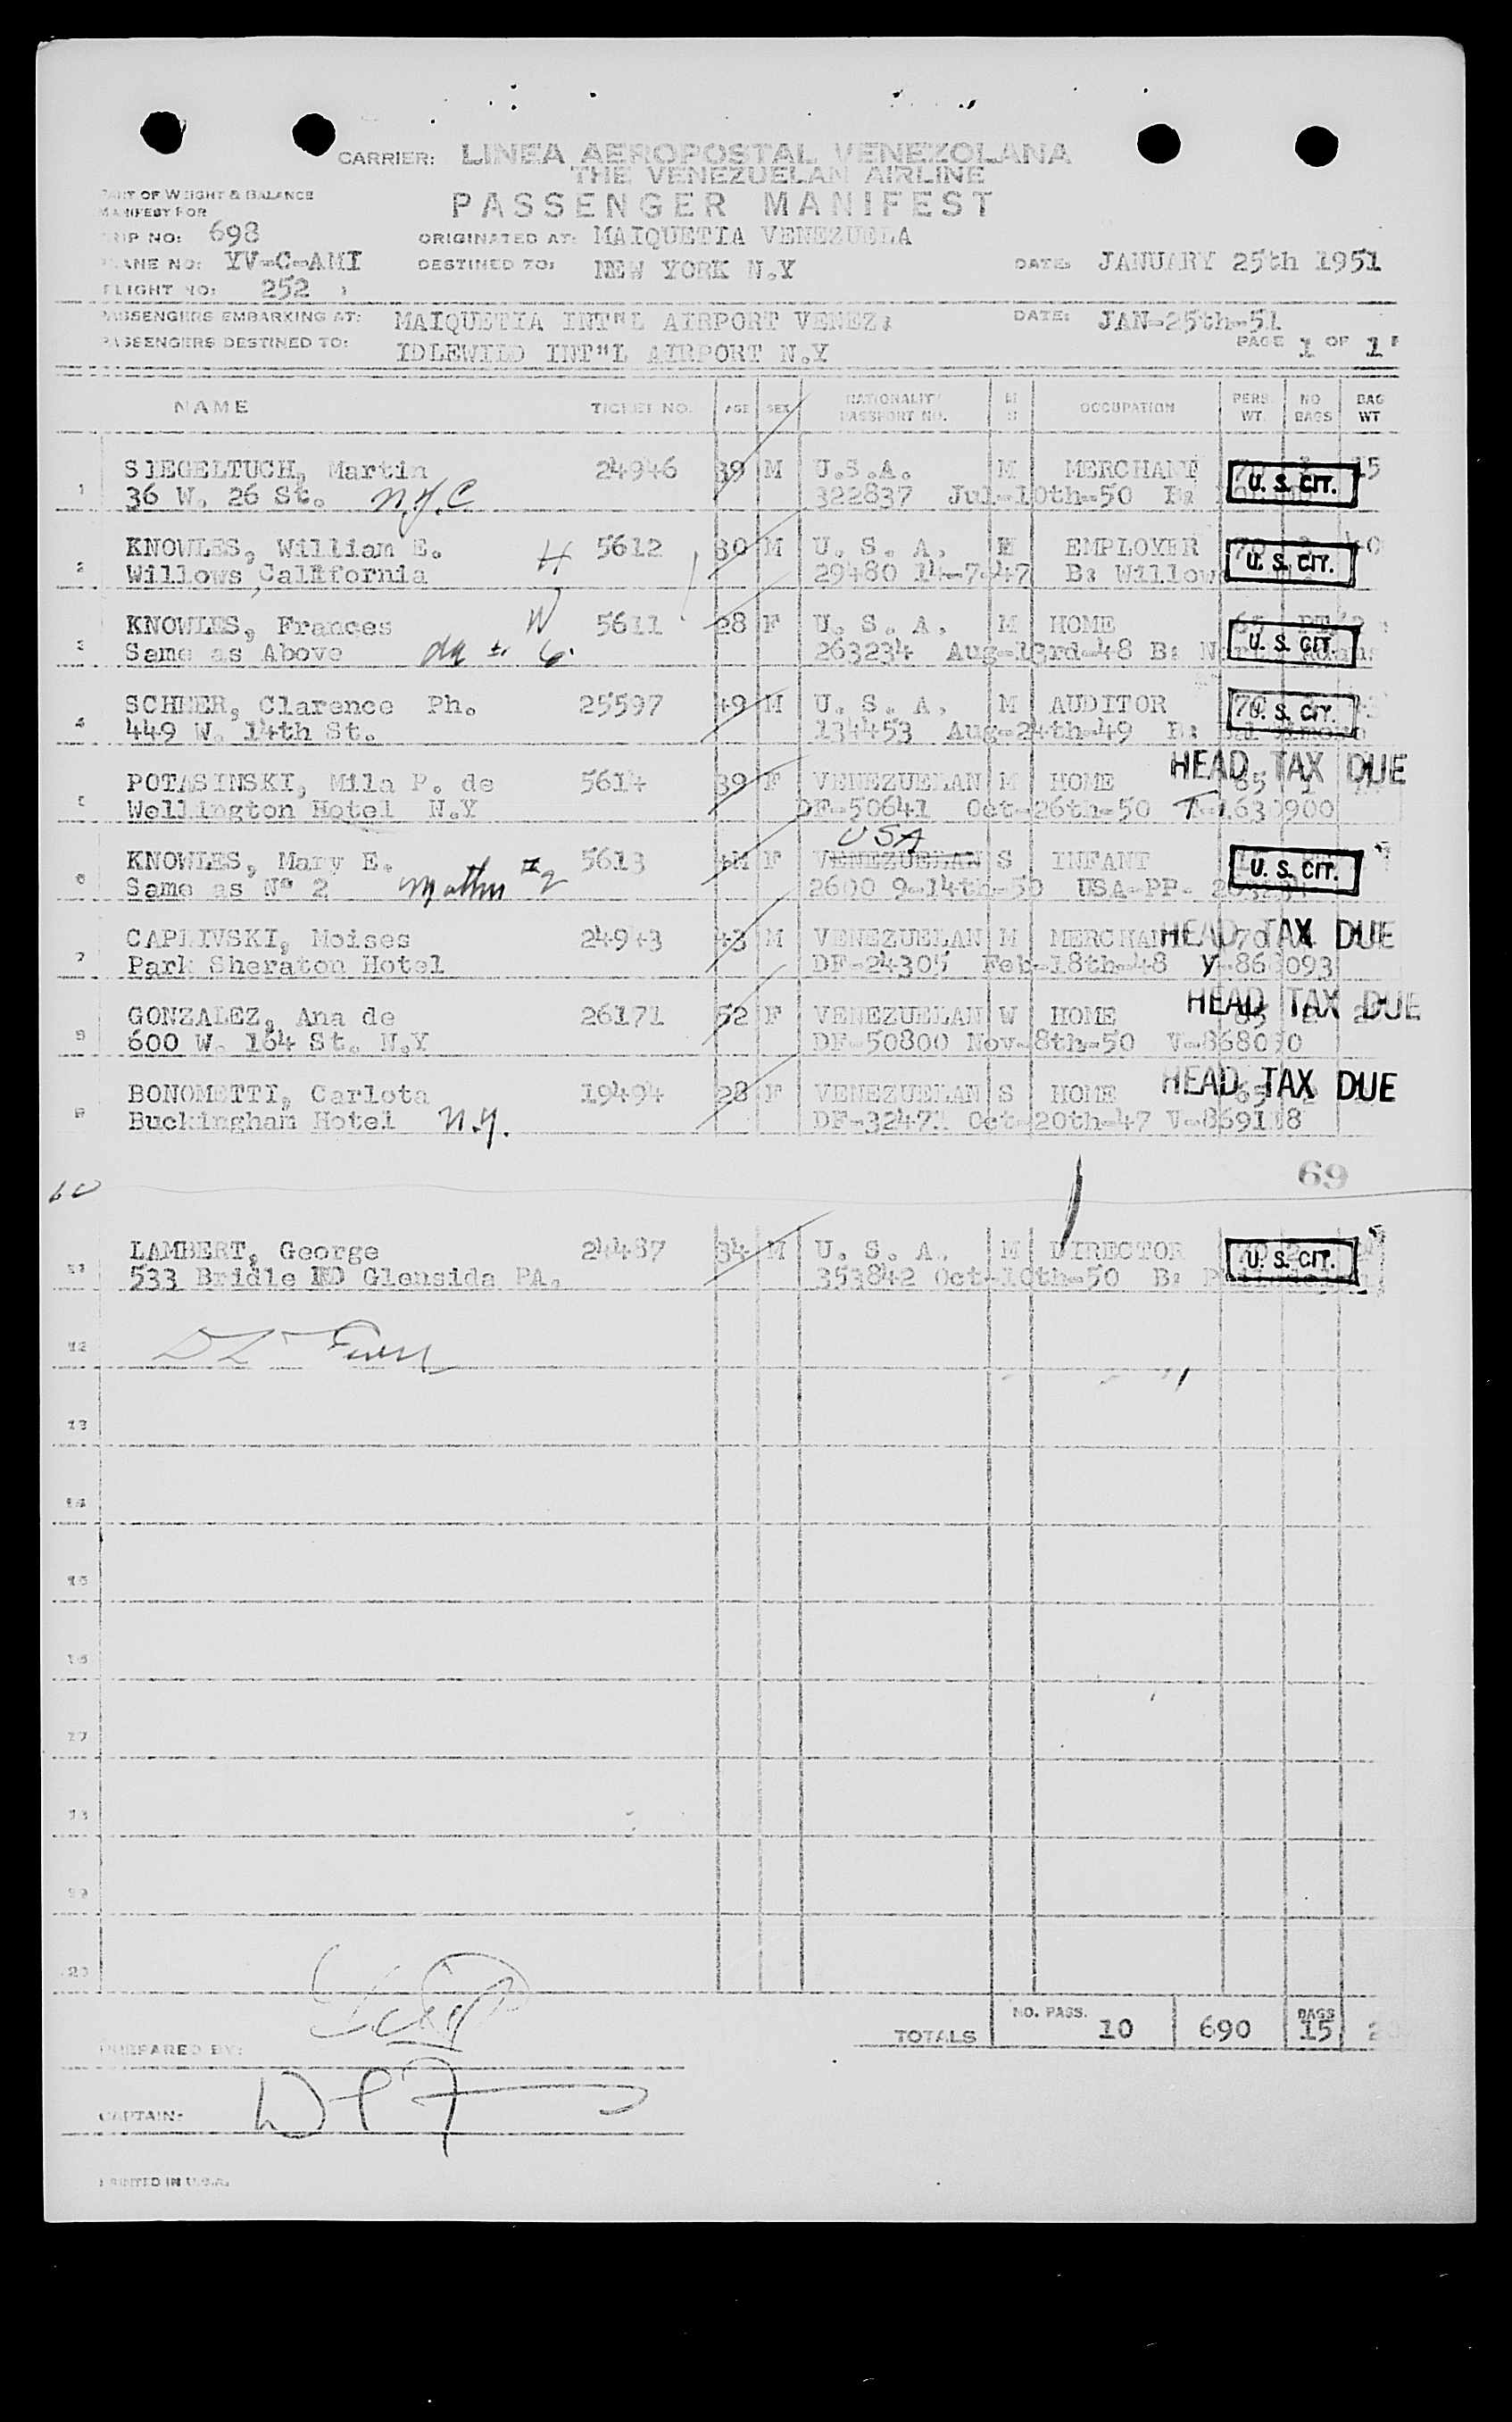 CARRIER: LINEA AEROPOSTAL VENEZOLANA
THE VENEZUELAN AIRLINE
PART OF WEIGHT & BALANCE
MANIFEST FOR
PASSENGER MANIFEST
TRIP NO: 698
ORIGINATED AT: MAIQUETIA VENEZUELA
PLANE NO: YV-C-AMI
DESTINED TO: NEW YORK N.Y
DATE: JANUARY 25th 1951
FLIGHT NO: 252
PASSENGERS EMBARKING AT: MAIQUETIA INT"L AIRPORT VENEZ:
DATE: JAN-25th-51
PASSENGERS DESTINED TO: IDLEWILD INT"L AIRPORT N.Y
PAGE 1 OF 1
NAME TICKET NO. AGE SEX NATIONALITY PASSPORT NO. OCCUPATION PERS. WT. NO BAGS BAG WT
SIEGELTUCH, Martin 24946 39 M U.S.A. M MERCHANT 70 15
1 36 W. 26 St. N.Y.C 322837 Jul-10th-50 B: U. S. CIT.
KNOWLES, William E. H 5612 30 M U. S. A. M EMPLOYER 70 40
2 Willows, California 29480 14-7-47 B: Willows U. S. CIT.
KNOWLES, Frances W 5611 28 F U. S. A. M HOME
3 Same as Above 263234 Aug-13rd-48 B: U. S. CIT.
SCHEER, Clarence Ph. 25597 49 M U. S. A. M AUDITOR 70
4 449 W. 14th St. 134453 Aug-24th-49 B: U. S. CIT.
HEAD TAX DUE
POTASINSKI, Mila P. de 5614 39 F VENEZUELAN M HOME 65 1
5 Wellington Hotel N.Y DF-50641 Oct-26th-50 630900
USA
KNOWLES, Mary E. 5613 F VENEZUELAN S INFANT
6 Same as Nº 2 Mother #2 2600 9-14th-50 USA-PP- U. S. CIT.
CAPLIVSKI, Moises 24943 43 M VENEZUELAN M MERCHANT 70 HEAD TAX DUE
7 Park Sheraton Hotel DF-24305 Feb-18th-48
HEAD TAX DUE
GONZALEZ, Ana de 26171 52 F VENEZUELAN W HOME 65 2
8 600 W. 164 St. N.Y DF-50800 Nov-8th-50
BONOMETTI, Carlota 19494 28 F VENEZUELAN S HOME 65 HEAD TAX DUE
9 Buckingham Hotel N.Y. Oct-20th-47
69
LAMBERT, George 24487 34 M U. S. A. M DIRECTOR
11 533 Bridle RD Glensida PA, 353842 Oct-10th-50 B: U. S. CIT.
12
13
14
15
16
17
18
19
20
TOTALS NO. PASS. 10 690 BAGS 15
PREPARED BY:
CAPTAIN:
PRINTED IN U.S.A.